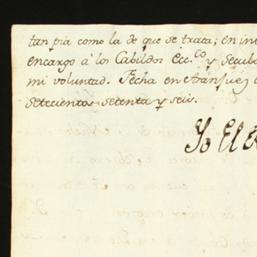 tan pia como la de que se trata; en in
encargo â los Cabildos Ecc.co y Secul
mi voluntad. Fecha en Aranjuez
setecientos setenta y seis.
Yo El